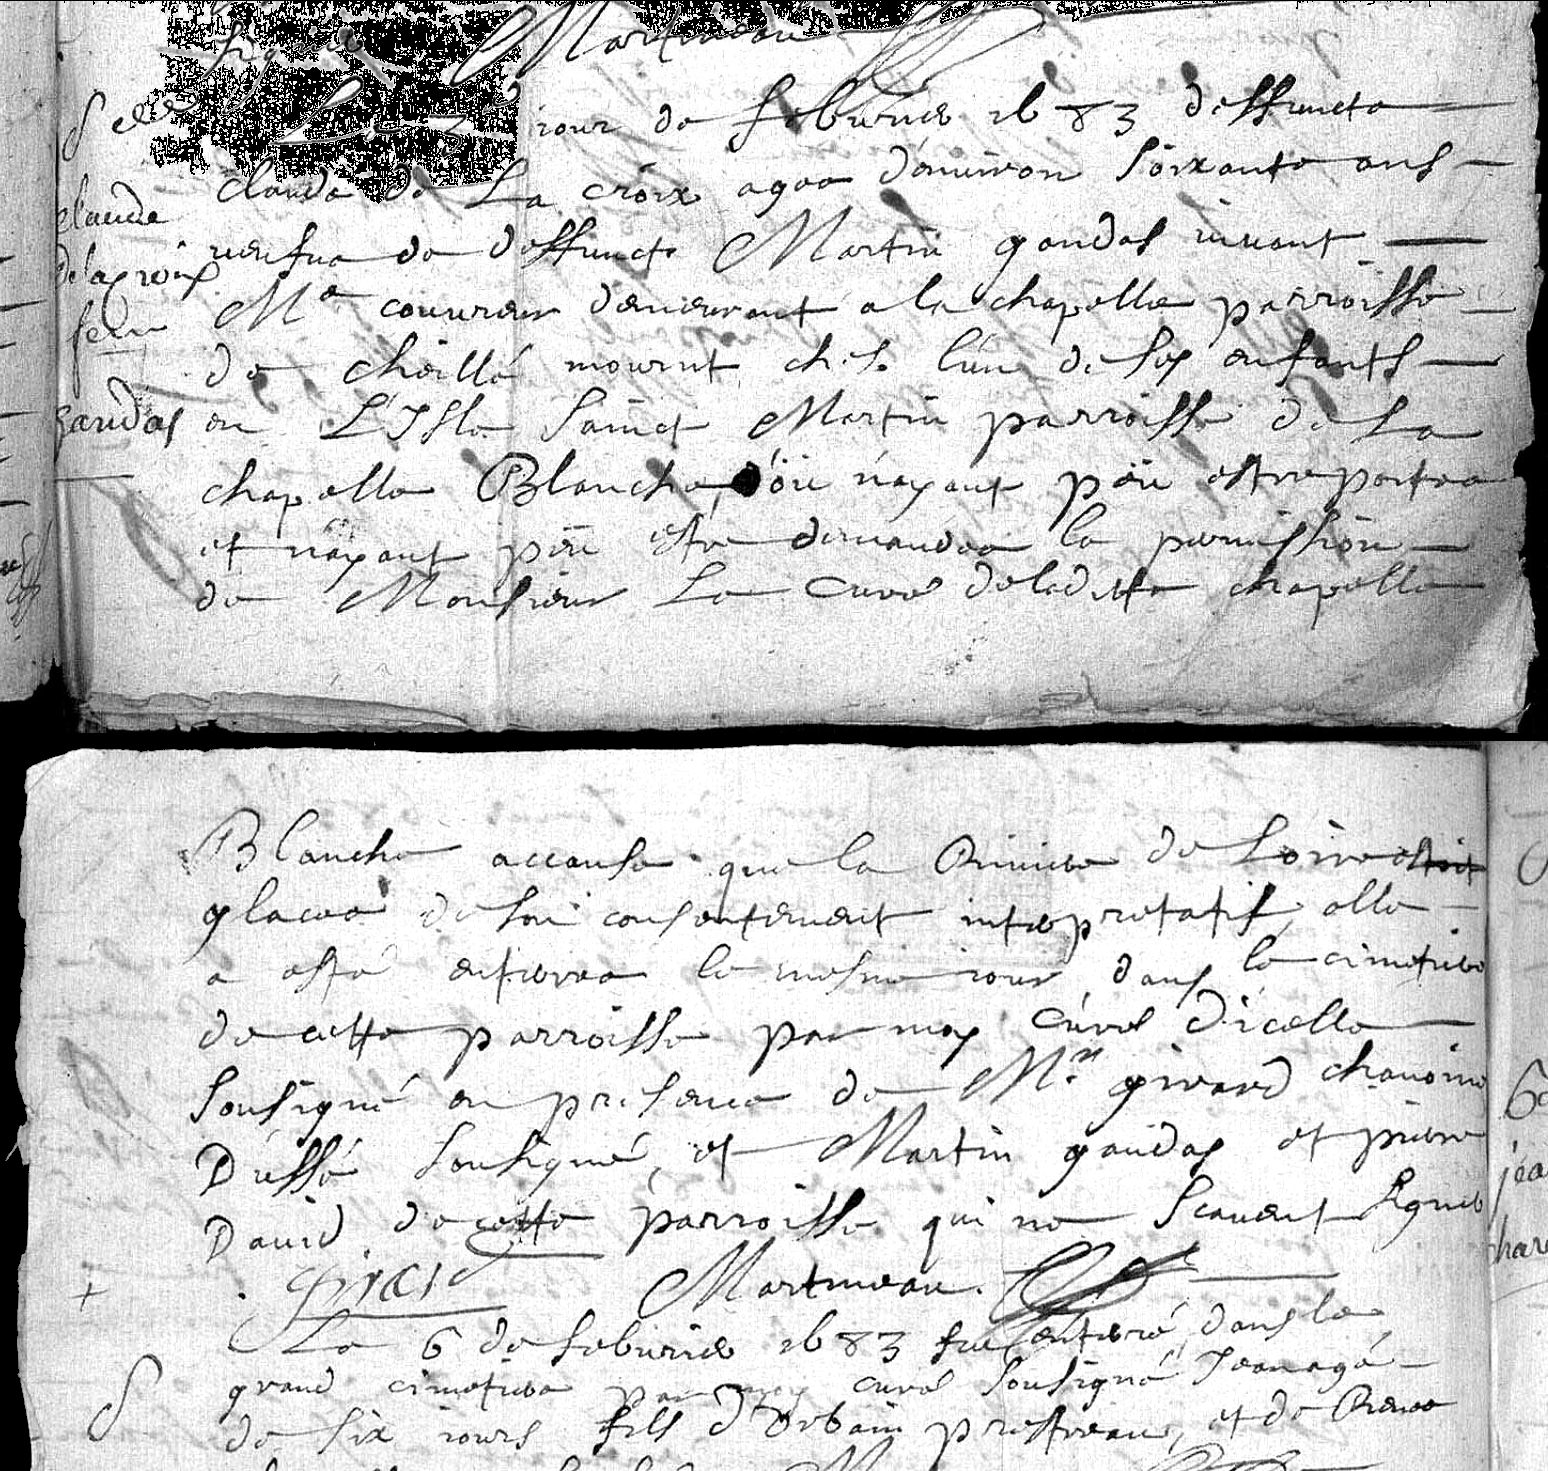 signer Martineau
Le 3 iour de feburier 1683 deffuncte
claude de La croix agee d'enuiron soixante ans
claude
delacroix
feme
gaudas
veufue de deffunct Martin gaudas viuant
Me couureur demeurant a la chapelle parroisse
de cheillé mourut ches l'un de ses enfants
en L'Isle sainct Martin parroisse de La
chapelle Blanche, d'ou n'ayant peu estre portee
et n'ayant peu estre demandee la permission
de Monsieur Le Curé deladitte chapelle
Blanche acause que la Riuiere de Loire estoit
glacee de son consentement interpretatif, elle
a esté enterree le mesme iour dans le cimetiere
de cette parroisse par moy Curé d'icelle
sousigné en presence de Mr girard chanoine
D'ussé sousigné, et Martin gaudas et pierre
David de cette parroisse qui ne scauent signer
Girard Martineau
Le 6 de feburier 1683 fut enterré dans le
grand cimetiere par moy curé sousigné Jean agé
de six iours fils d'Urbain prestreau, et de Renee